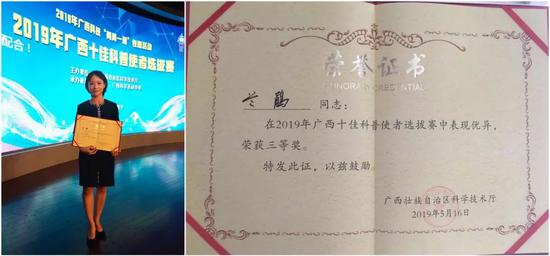 2019年广西科技“周周一新”性题活动
2019年广西十佳科普使者选拔赛
配合！
荣誉证书
HONORARY CREDENTIAL
兰鹏 同志：
在2019年广西十佳科普使者选拔赛中表现优异，
荣获三等奖。
特发此证，以兹鼓励。
广西壮族自治区科学技术厅
2019年5月16日